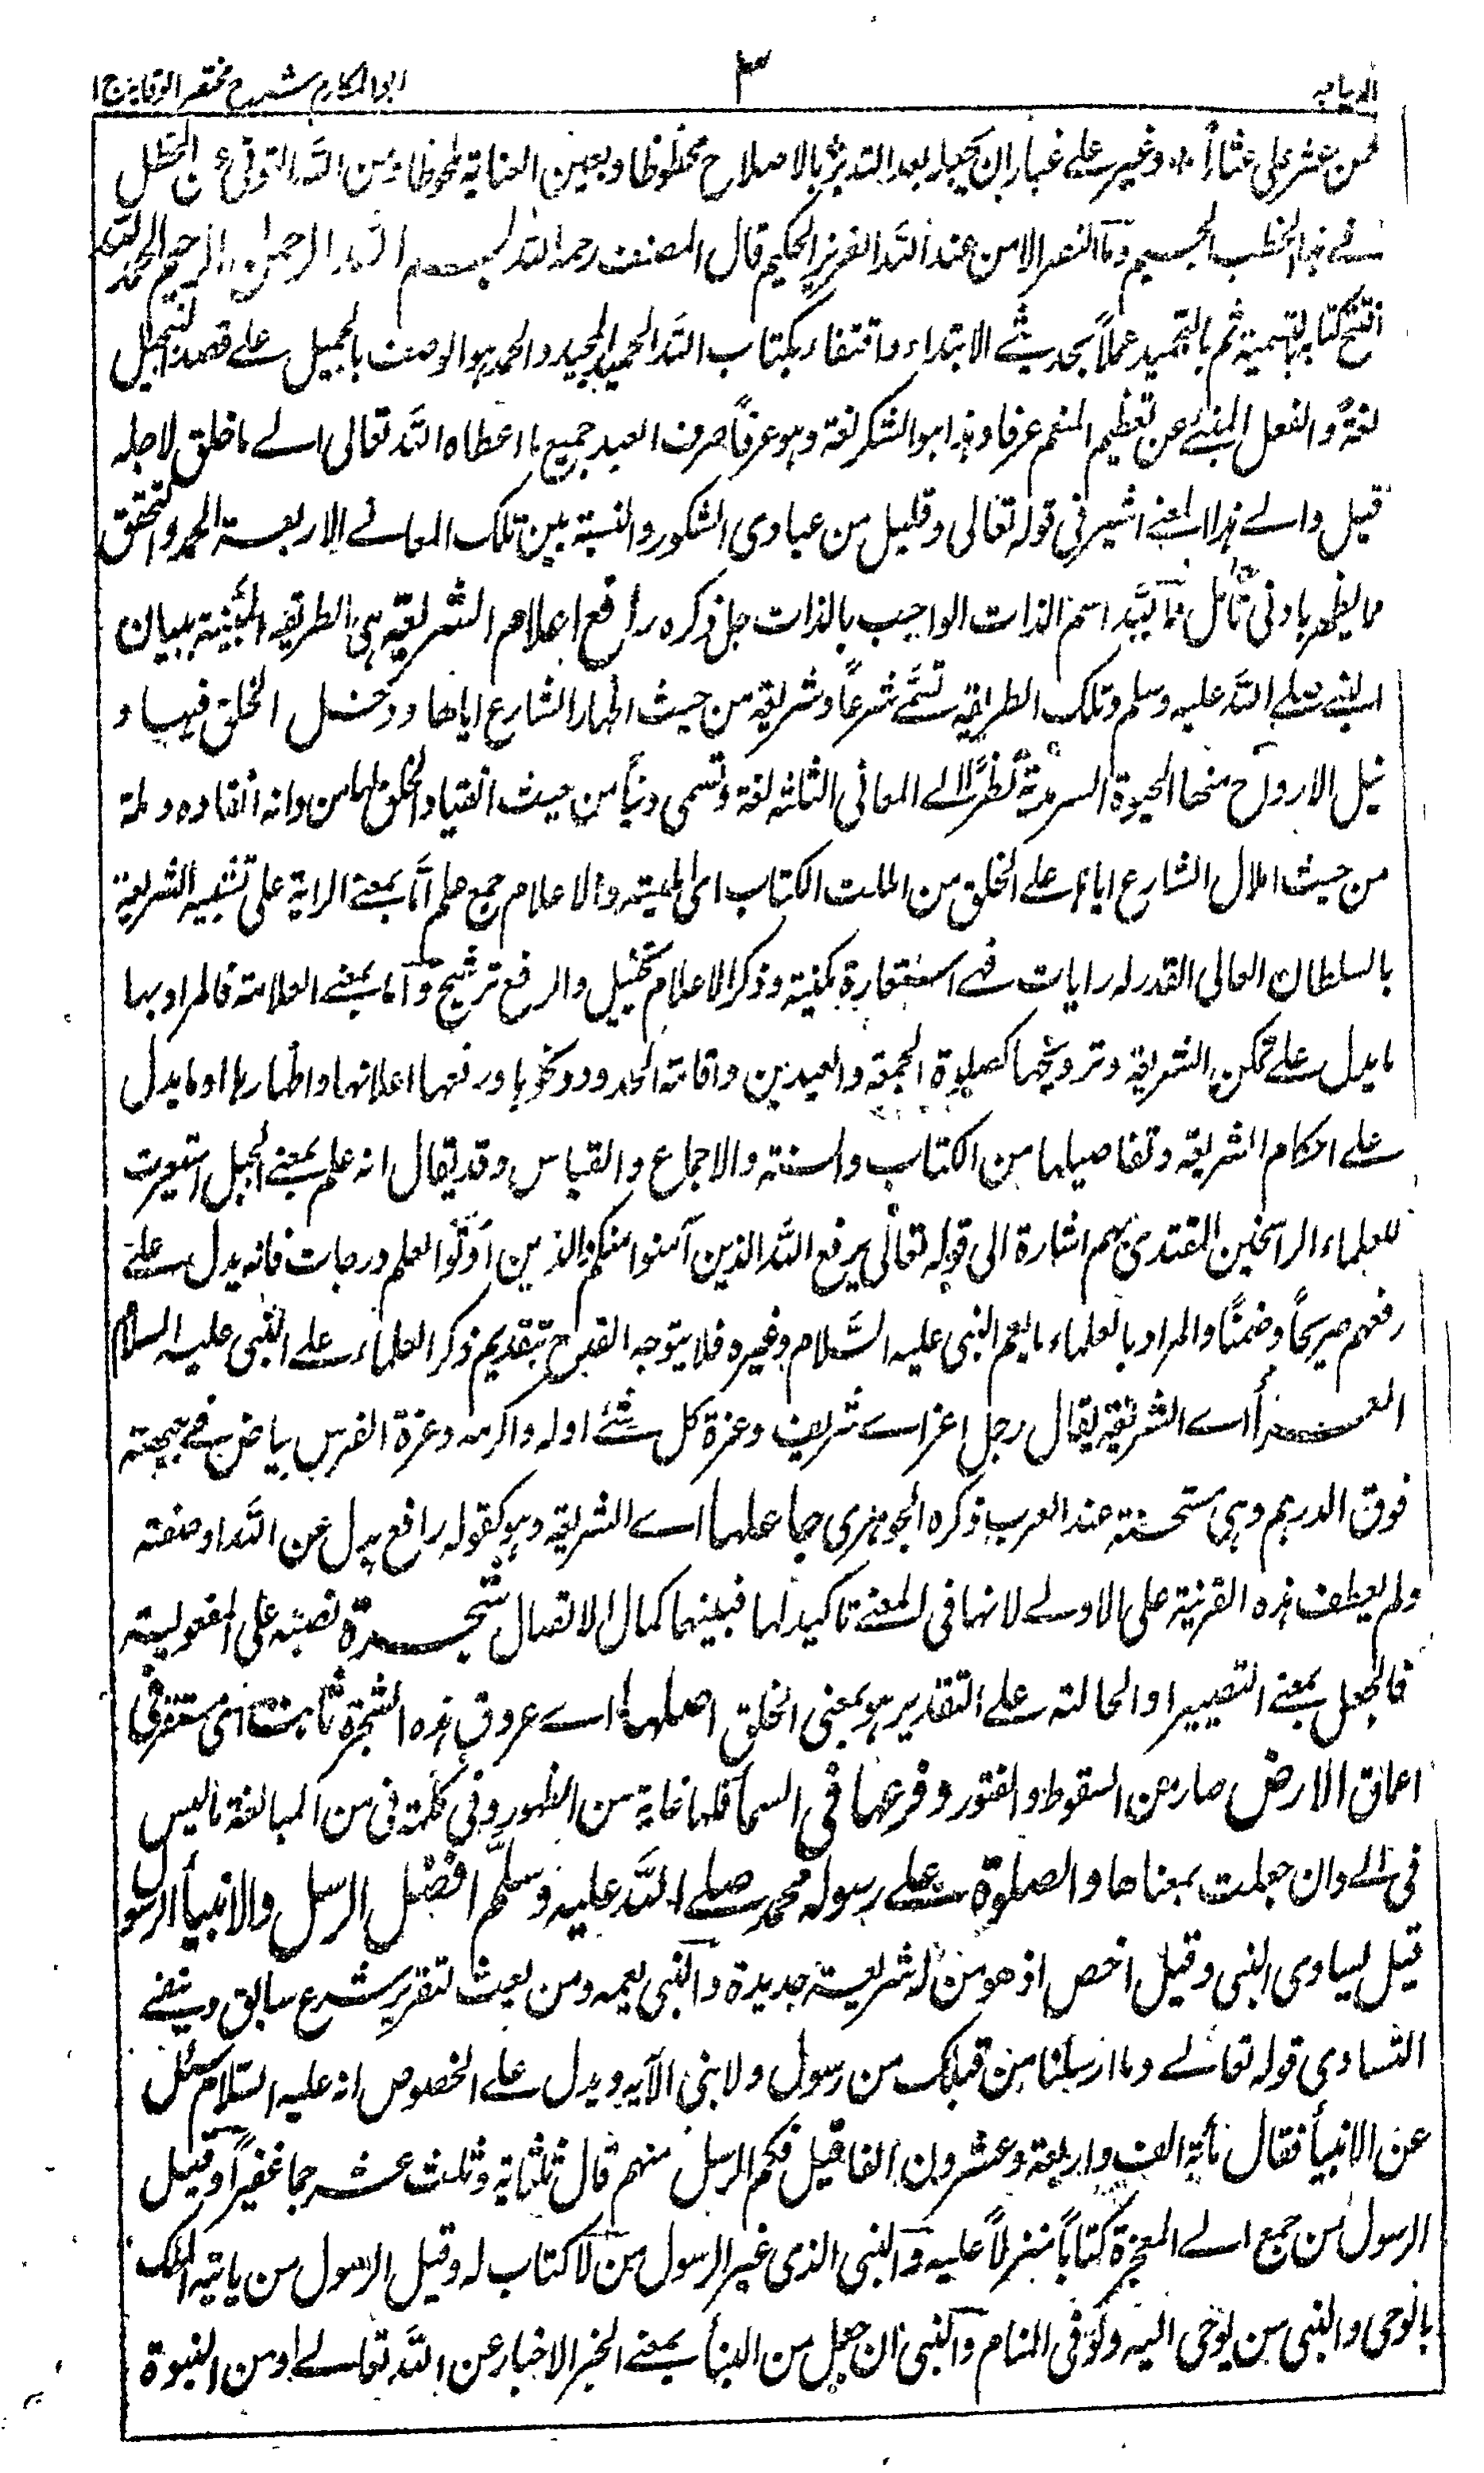 الديباجة ٣ ابو المكارم شرح مختصر الوقاية ج ا
فمن عثر على عثار او غير على غبار ان يجعله بعد التدبر بالاصلاح محظوظا وبعين العناية ملحوظا ومن الله التوقي عن الخطل
في هذا الخطب الجسيم وما النصر الا من عند الله العزيز الحكيم قال المصنف رحمه الله بسم الله الرحمن الرحيم الحمد لله
افتتح كتابه بالتسمية ثم بالتحميد عملاً بحديثي الابتداء واقتفاء بكتاب الله الحميد المجيد والحمد هو الوصف بالجميل على قصد التبجيل
لغةً والفعل المنبئ عن تعظيم المنعم عرفا وهذا هو الشكر لغة وهو عرفاً صرف العبد جميع ما اعطاه الله تعالى الى ما خلق لاجله
قيل والى هذا المعنى اشير في قوله تعالى وقليل من عبادي الشكور والنسبة بين تلك المعاني الاربعة الحمد والتحقق
مما يظهر بادنى تأمل والله اسم الذات الواجب بالذات جل ذكره رافع اعلام الشريعة هي الطريقة المبينة ببيان
النبي صلى الله عليه وسلم وتلك الطريقة تسمى شرعاً وشريعة من حيث اظهار الشارع اياها ودخل الخلق فيها و
نيل الارواح منها الحيوة السرمدية نظراً الى المعاني الثلثة لغة وتسمى ديناً من حيث انقياد الخلق لها من دانه انقاده وملة
من حيث املال الشارع اياها على الخلق من املت الكتاب اى امليته والاعلام جمع علم اما بمعنى الراية على تشبيه الشريعة
بالسلطان العالى القدر له رايات فهي استعارة مكنية وذكر الاعلام تخييل والرفع ترشيح واما بمعنى العلامة فالمراد بها
ما يدل على تمكن الشريعة وترويجها كصلوة الجمعة والعيدين واقامة الحدود ونحوها ورفعها اعلانها واظهارها او ما يدل
على احكام الشريعة وتفاصيلها من الكتاب والسنة والاجماع والقياس وقد يقال انه علم بمعنى الجبل استعيرت
للعلماء الراسخين المقتدى بهم اشارة الى قوله تعالى يرفع الله الذين آمنوا منكم والذين اوتوا العلم درجات فانه يدل على
رفعهم صريحاً وضمناً والمراد بالعلماء ما يعم النبي عليه السَّلام وغيره فلا يتوجه القدح بتقديم ذكر العلماء على النبي عليه السلام
الغـــراء اى الشريفة يقال رجل اغر اى شريف وغرة كل شئ اوله واكرمه وغرة الفرس بياض في جبهته
فوق الدرهم وهي مستحسنة عند العرب ذكره الجوهري جاعلها اى الشريعة وهو كقوله رافع بدل عن الله او صفته
ولم يعطف هذه القرينة على الاولى لانها في المعنى تاكيد لها فبينهما كمال الاتصال شجـــرة نصبه على المفعولية
فالجعل بمعنى التصيير او الحالية على التقدير هو بمعنى الخلق اصلها اى عروق هذه الشجرة ثابت اى مستقر في
اعماق الارض صار عن السقوط والفتور وفرعها في السماء فلها غاية من الظهور وفي كلمة في من المبالغة ما ليس
في الى وان جعلت بمعناها والصلوة على رسوله محمد صلى الله عليه وسلم افضل الرسل والانبياء الرسول
قيل يساوى النبي وقيل اخص اذ هو من له شريعة جديدة والنبي يعمه ومن بعث لتقرير شرع سابق وينفي
التساوى قوله تعالى وما ارسلنا من قبلك من رسول ولا نبى الآية ويدل على الخصوص انه عليه السلام سئل
عن الانبياء فقال مأية الف واربعة وعشرون الفا قيل فكم الرسل منهم قال ثلثمائة وثلث عشر جما غفيراً وقيل
الرسول من جمع الى المعجزة كتاباً منزلاً عليه والنبى الذى غير الرسول من لا كتاب له وقيل الرسول من ياتيه الملك
بالوحى والنبى من يوحى اليه ولو فى المنام والنبى ان جعل من النبأ بمعنى الخبر الاخبار عن الله تعالى او من النبوة